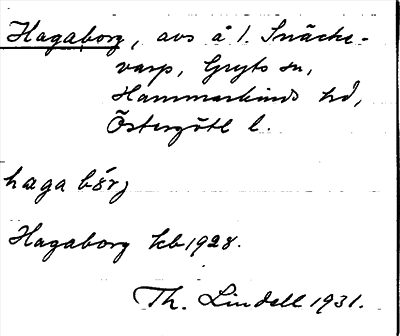 Hagaborg, avs å 1. Snäcke-
varp, Gryts sn,
Hammarkinds hd,
Östergötl l.
haga bórj
Hagaborg kb 1928.
Th. Lindell 1931.